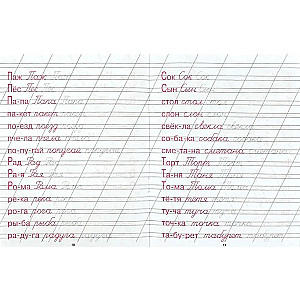 Паж Паж Паж
Пёс Пёс Пёс
Па-па Папа Папа
па-кет пакет пакет
по-езд поезд поезд
пче-ла пчела пчела
по-пу-гай попугай попугай
Рад Рад Рад
Ра-я Рая Рая
Ро-ма Рома Рома
ре-ка река река
ро-га рога рога
ры-ба рыба рыба
ра-ду-га радуга радуга
Сок Сок сок
Сын Сын сын
стол стол стол
слон слон слон
свёк-ла свёкла свёкла
со-ба-ка собака собака
сме-та-на сметана сметана
Торт Торт Торт
Та-ня Таня Таня
То-ма Тома Тома
те-тя тетя тетя
ту-ча туча туча
точ-ка точка точка
та-бу-рет табурет табурет